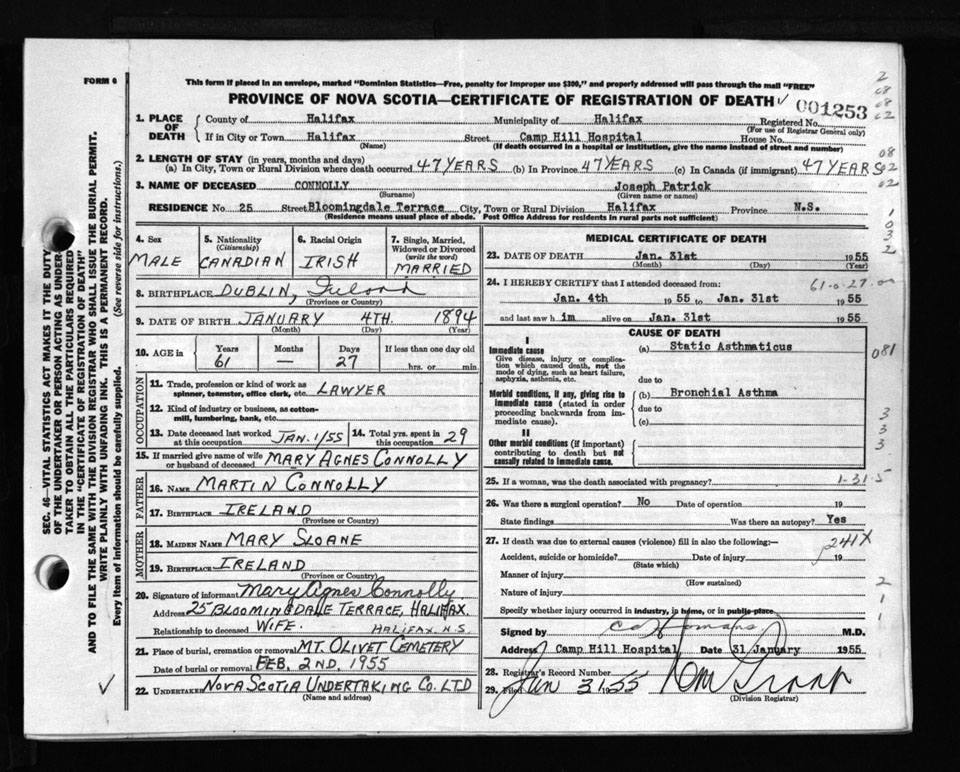 FORM 6
This form if placed in an envelope, marked "Dominion Statistics—Free, penalty for improper use $300," and properly addressed will pass through the mail "FREE"
PROVINCE OF NOVA SCOTIA—CERTIFICATE OF REGISTRATION OF DEATH ✓ 001253
SEC. 46—VITAL STATISTICS ACT MAKES IT THE DUTY OF THE UNDERTAKER OR PERSON ACTING AS UNDERTAKER TO OBTAIN ALL THE PARTICULARS REQUIRED IN THE "CERTIFICATE OF REGISTRATION OF DEATH"
AND TO FILE THE SAME WITH THE DIVISION REGISTRAR WHO SHALL ISSUE THE BURIAL PERMIT.
WRITE PLAINLY WITH UNFADING INK. THIS IS A PERMANENT RECORD.
Every item of information should be carefully supplied. (See reverse side for instructions.)
1. PLACE OF DEATH
County of Halifax Municipality of Halifax Registered No.
(For use of Registrar General only)
If in City or Town Halifax Street Camp Hill Hospital House No.
(Name) (If death occurred in a hospital or institution, give the name instead of street and number)
2. LENGTH OF STAY (in years, months and days)
(a) In City, Town or Rural Division where death occurred 47 YEARS (b) In Province 47 YEARS (c) In Canada (if immigrant) 47 YEARS
3. NAME OF DECEASED CONNOLLY Joseph Patrick
(Surname) (Given name or names)
RESIDENCE No. 25 Street Bloomingdale Terrace City, Town or Rural Division Halifax Province N.S.
(Residence means usual place of abode. Post Office Address for residents in rural parts not sufficient)
4. Sex MALE
5. Nationality (Citizenship) CANADIAN
6. Racial Origin IRISH
7. Single, Married, Widowed or Divorced (write the word) MARRIED
8. BIRTHPLACE DUBLIN, Ireland
(Province or Country)
9. DATE OF BIRTH JANUARY 4TH. 1894
(Month) (Day) (Year)
10. AGE in Years 61 Months — Days 27 If less than one day old
hrs. or min.
OCCUPATION
11. Trade, profession or kind of work as spinner, teamster, office clerk, etc. LAWYER
12. Kind of industry or business, as cotton-mill, lumbering, bank, etc.
13. Date deceased last worked at this occupation JAN. 1/55
14. Total yrs. spent in this occupation 29
15. If married give name of wife or husband of deceased MARY AGNES CONNOLLY
FATHER
16. NAME MARTIN CONNOLLY
17. BIRTHPLACE IRELAND
(Province or Country)
MOTHER
18. MAIDEN NAME MARY SLOANE
19. BIRTHPLACE IRELAND
(Province or Country)
20. Signature of informant Mary Agnes Connolly
Address 25 BLOOMINGDALE TERRACE, HALIFAX
Relationship to deceased WIFE. HALIFAX N.S.
21. Place of burial, cremation or removal MT. OLIVET CEMETERY
Date of burial or removal FEB. 2ND. 1955
22. UNDERTAKER NOVA SCOTIA UNDERTAKING CO. LTD
(Name and address)
✓
MEDICAL CERTIFICATE OF DEATH
23. DATE OF DEATH Jan. 31st 1955
(Month) (Day) (Year)
24. I HEREBY CERTIFY that I attended deceased from:
Jan. 4th 1955 to Jan. 31st 1955
and last saw h im alive on Jan. 31st 1955
CAUSE OF DEATH
I
Immediate cause
Give disease, injury or complication which caused death, not the mode of dying, such as heart failure, asphyxia, asthenia, etc.
(a) Static Asthmaticus
due to
Morbid conditions, if any, giving rise to immediate cause (stated in order proceeding backwards from immediate cause).
(b) Bronchial Asthma
due to
(c)
II
Other morbid conditions (if important) contributing to death but not causally related to immediate cause.
25. If a woman, was the death associated with pregnancy? 1-31-5
26. Was there a surgical operation? No Date of operation 19
State findings Was there an autopsy? Yes
27. If death was due to external causes (violence) fill in also the following:— 241X
Accident, suicide or homicide? Date of injury 19
(State which)
Manner of injury
(How sustained)
Nature of injury
Specify whether injury occurred in industry, in home, or in public place
Signed by M.D.
Address Camp Hill Hospital Date 31 January 1955
28. Registrar's Record Number
29. Filed Jan 31 55
(Division Registrar)
2
08
08
02
08
02
02
1
0
3
2
081
3
3
3
2
1
1